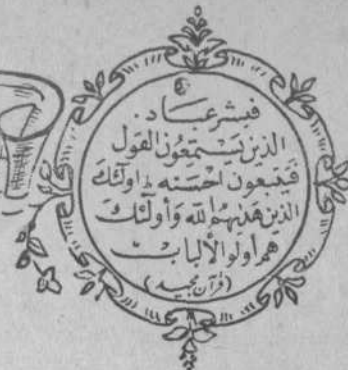 فبشر عباد.
الذين يستمعون القول
فيتبعون احسنه ط اولئك
الذين هديهم الله وأولئك
هم أولو الألباب
(قرآن مجيد)